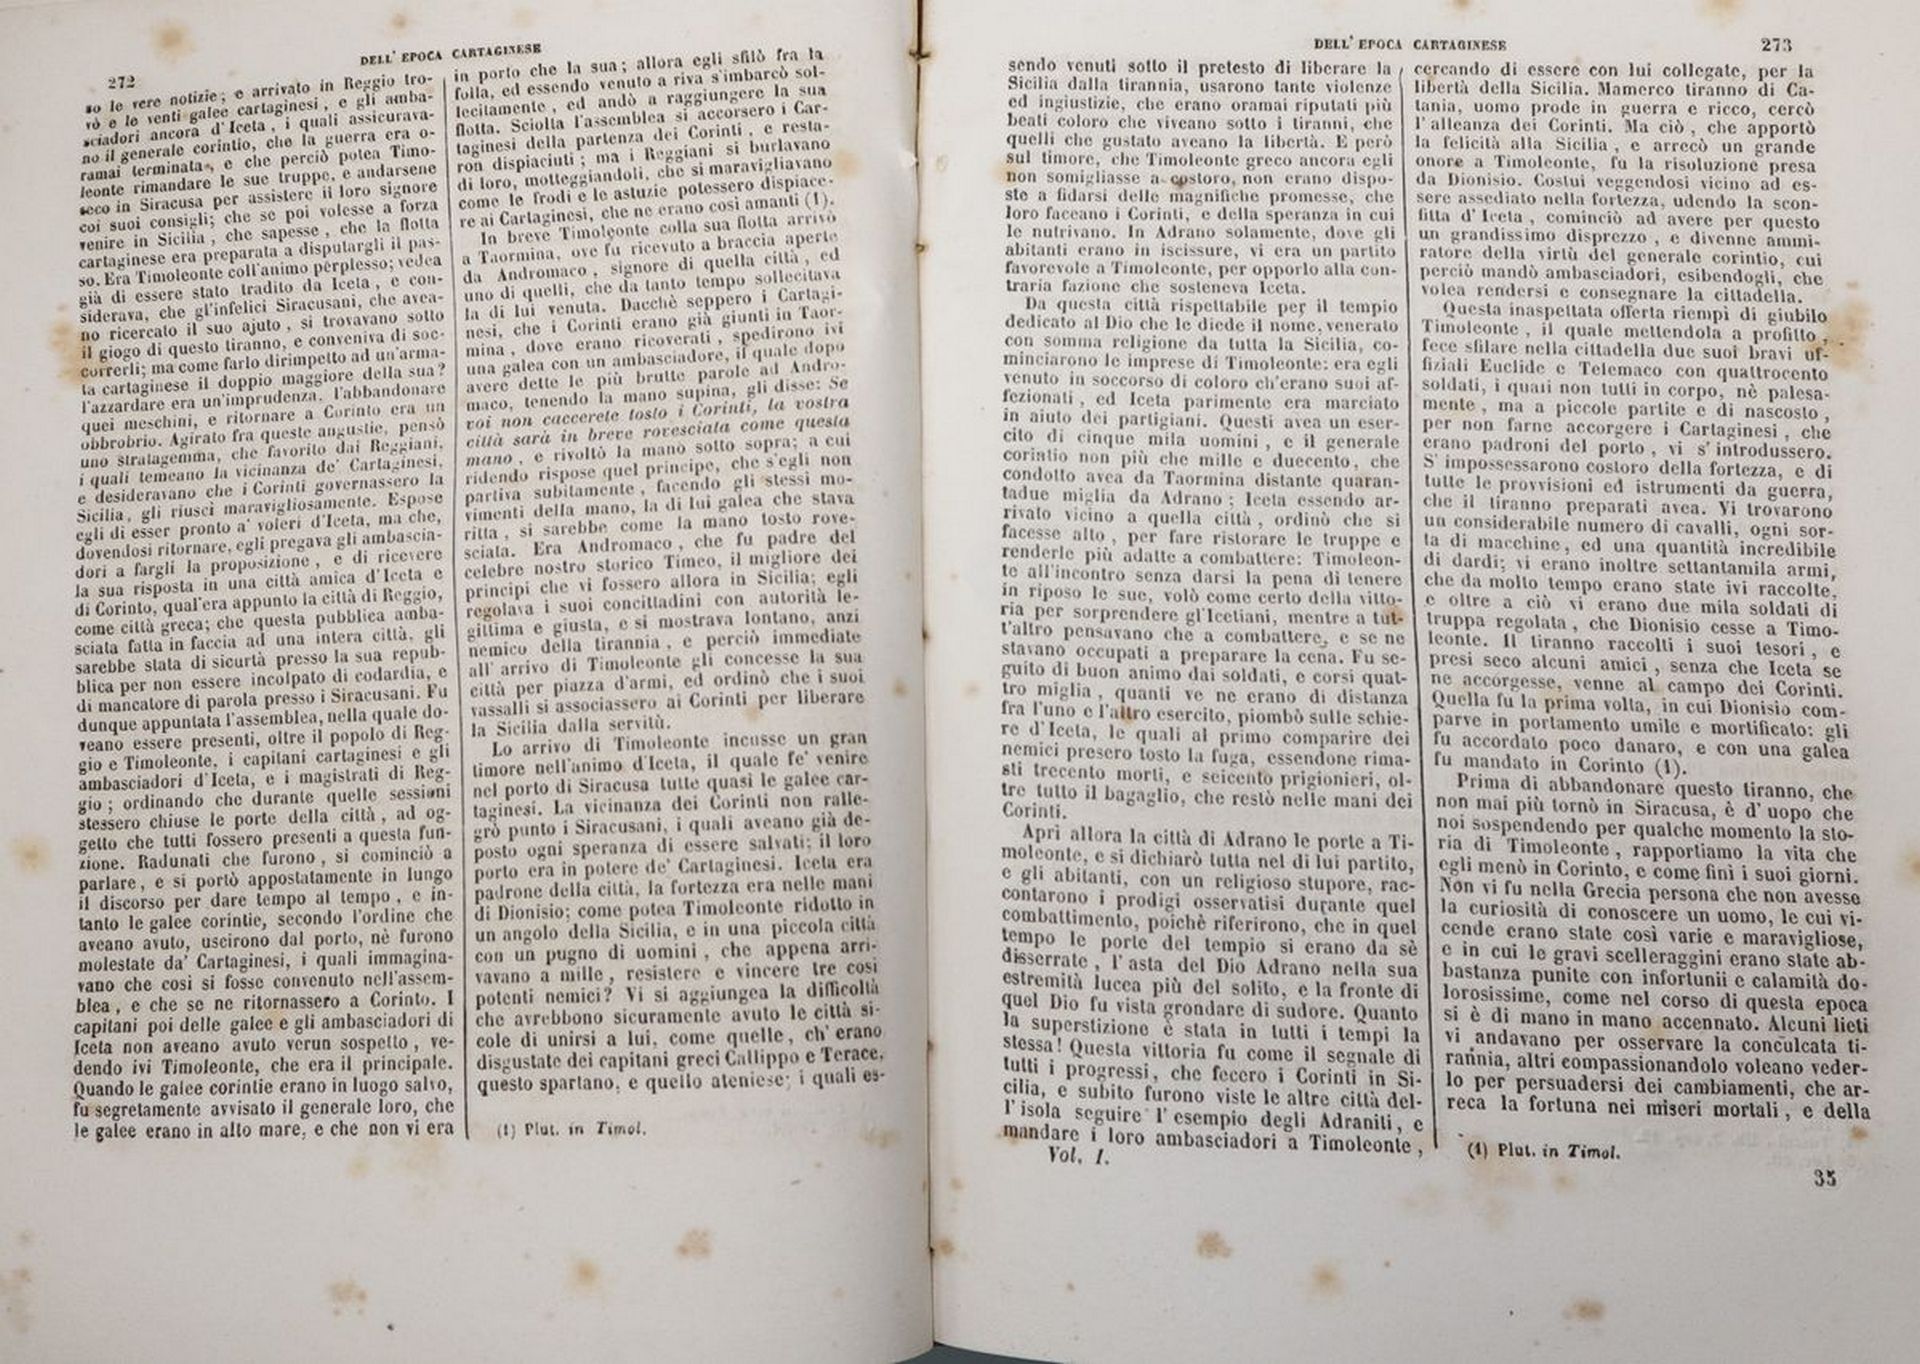 272
DELL' EPOCA CARTAGINESE
so le vere notizie; e arrivato in Reggio tro-
vò e le venti galee cartaginesi, e gli amba-
sciadori ancora d'Iceta, i quali assicurava-
no il generale corintio, che la guerra era o-
ramai terminata, e che perciò potea Timo-
leonte rimandare le sue truppe, e andarsene
seco in Siracusa per assistere il loro signore
coi suoi consigli; che se poi volesse a forza
venire in Sicilia, che sapesse, che la flotta
cartaginese era preparata a disputargli il pas-
so. Era Timoleonte coll'animo perplesso; vedea
già di essere stato tradito da Iceta, e con-
siderava, che gl'infelici Siracusani, che avea-
no ricercato il suo ajuto, si trovavano sotto
il giogo di questo tiranno, e conveniva di soc-
correrli; ma come farlo dirimpetto ad un'arma-
ta cartaginese il doppio maggiore della sua?
l'azzardare era un'imprudenza, l'abbandonare
quei meschini, e ritornare a Corinto era un
obbrobrio. Agitato fra queste angustie, pensò
uno stratagemma, che favorito dai Reggiani,
i quali temeano la vicinanza de' Cartaginesi,
e desideravano che i Corinti governassero la
Sicilia, gli riuscì maravigliosamente. Espose
egli di esser pronto a' voleri d'Iceta, ma che,
dovendosi ritornare, egli pregava gli ambascia-
dori a fargli la proposizione, e di ricevere
la sua risposta in una città amica d'Iceta e
di Corinto, qual'era appunto la città di Reggio,
come città greca; che questa pubblica amba-
sciata fatta in faccia ad una intera città, gli
sarebbe stata di sicurtà presso la sua repub-
blica per non essere incolpato di codardia, e
di mancatore di parola presso i Siracusani. Fu
dunque appuntata l'assemblea, nella quale do-
veano essere presenti, oltre il popolo di Reg-
gio e Timoleonte, i capitani cartaginesi e gli
ambasciadori d'Iceta, e i magistrati di Reg-
gio; ordinando che durante quelle sessioni
stessero chiuse le porte della città, ad og-
getto che tutti fossero presenti a questa fun-
zione. Radunati che furono, si cominciò a
parlare, e si portò appostatamente in lungo
il discorso per dare tempo al tempo, e in-
tanto le galee corintie, secondo l'ordine che
aveano avuto, uscirono dal porto, nè furono
molestate da' Cartaginesi, i quali immagina-
vano che così si fosse convenuto nell'assem-
blea, e che se ne ritornassero a Corinto. I
capitani poi delle galee e gli ambasciadori di
Iceta non aveano avuto verun sospetto, ve-
dendo ivi Timoleonte, che era il principale.
Quando le galee corintie erano in luogo salvo,
fu segretamente avvisato il generale loro, che
le galee erano in alto mare, e che non vi era
in porto che la sua; allora egli sfilò fra la
folla, ed essendo venuto a riva s'imbarcò sol-
lecitamente, ed andò a raggiungere la sua
flotta. Sciolta l'assemblea si accorsero i Car-
taginesi della partenza dei Corinti, e resta-
ron dispiaciuti; ma i Reggiani si burlavano
di loro, motteggiandoli, che si maravigliavano
come le frodi e le astuzie potessero dispiace-
re ai Cartaginesi, che ne erano così amanti (1).
In breve Timoleonte colla sua flotta arrivò
a Taormina, ove fu ricevuto a braccia aperte
da Andromaco, signore di quella città, ed
uno di quelli, che da tanto tempo sollecitava
la di lui venuta. Dacchè seppero i Cartagi-
nesi, che i Corinti erano già giunti in Taor-
mina, dove erano ricoverati, spedirono ivi
una galea con un ambasciadore, il quale dopo
avere dette le più brutte parole ad Andro-
maco, tenendo la mano supina, gli disse: Se
voi non caccerete tosto i Corinti, la vostra
città sarà in breve rovesciata come questa
mano, e rivoltò la mano sotto sopra; a cui
ridendo rispose quel principe, che s'egli non
partiva subitamente, facendo gli stessi mo-
vimenti della mano, la di lui galea che stava
ritta, si sarebbe come la mano tosto rove-
sciata. Era Andromaco, che fu padre del
celebre nostro storico Timeo, il migliore dei
principi che vi fossero allora in Sicilia; egli
regolava i suoi concittadini con autorità le-
gittima e giusta, e si mostrava lontano, anzi
nemico della tirannia, e perciò immediate
all' arrivo di Timoleonte gli concesse la sua
città per piazza d'armi, ed ordinò che i suoi
vassalli si associassero ai Corinti per liberare
la Sicilia dalla servitù.
Lo arrivo di Timoleonte incusse un gran
timore nell'animo d'Iceta, il quale fe' venire
nel porto di Siracusa tutte quasi le galee car-
taginesi. La vicinanza dei Corinti non ralle-
grò punto i Siracusani, i quali aveano già de-
posto ogni speranza di essere salvati; il loro
porto era in potere de' Cartaginesi. Iceta era
padrone della città, la fortezza era nelle mani
di Dionisio; come potea Timoleonte ridotto in
un angolo della Sicilia, e in una piccola città
con un pugno di uomini, che appena arri-
vavano a mille, resistere e vincere tre così
potenti nemici? Vi si aggiungea la difficoltà
che avrebbono sicuramente avuto le città si-
cole di unirsi a lui, come quelle, ch' erano
disgustate dei capitani greci Callippo e Terace,
questo spartano, e quello ateniese; i quali es-
(1) Plut. in Timol.
DELL' EPOCA CARTAGINESE
273
sendo venuti sotto il pretesto di liberare la
Sicilia dalla tirannia, usarono tante violenze
ed ingiustizie, che erano oramai riputati più
beati coloro che viveano sotto i tiranni, che
quelli che gustato aveano la libertà. E però
sul timore, che Timoleonte greco ancora egli
non somigliasse a costoro, non erano dispo-
ste a fidarsi delle magnifiche promesse, che
loro faceano i Corinti, e della speranza in cui
le nutrivano. In Adrano solamente, dove gli
abitanti erano in iscissure, vi era un partito
favorevole a Timoleonte, per opporlo alla con-
traria fazione che sosteneva Iceta.
Da questa città rispettabile per il tempio
dedicato al Dio che le diede il nome, venerato
con somma religione da tutta la Sicilia, co-
minciarono le imprese di Timoleonte: era egli
venuto in soccorso di coloro ch'erano suoi af-
fezionati, ed Iceta parimente era marciato
in aiuto dei partigiani. Questi avea un eser-
cito di cinque mila uomini, e il generale
corintio non più che mille e duecento, che
condotto avea da Taormina distante quaran-
tadue miglia da Adrano: Iceta essendo ar-
rivato vicino a quella città, ordinò che si
facesse alto, per fare ristorare le truppe e
renderle più adatte a combattere: Timoleon-
te all'incontro senza darsi la pena di tenere
in riposo le sue, volò come certo della vitto-
ria per sorprendere gl'Icetiani, mentre a tut-
t'altro pensavano che a combattere, e se ne
stavano occupati a preparare la cena. Fu se-
guito di buon animo dai soldati, e corsi quat-
tro miglia, quanti ve ne erano di distanza
fra l'uno e l'altro esercito, piombò sulle schie-
re d'Iceta, le quali al primo comparire dei
nemici presero tosto la fuga, essendone rima-
sti trecento morti, e seicento prigionieri, ol-
tre tutto il bagaglio, che restò nelle mani dei
Corinti.
Aprì allora la città di Adrano le porte a Ti-
moleonte, e si dichiarò tutta nel di lui partito,
e gli abitanti, con un religioso stupore, rac-
contarono i prodigi osservatisi durante quel
combattimento, poichè riferirono, che in quel
tempo le porte del tempio si erano da sè
disserrate, l'asta del Dio Adrano nella sua
estremità lucea più del solito, e la fronte di
quel Dio fu vista grondare di sudore. Quanto
la superstizione è stata in tutti i tempi la
stessa! Questa vittoria fu come il segnale di
tutti i progressi, che fecero i Corinti in Si-
cilia, e subito furono viste le altre città del-
l'isola seguire l'esempio degli Adraniti, e
mandare i loro ambasciadori a Timoleonte,
Vol. I.
cercando di essere con lui collegate, per la
libertà della Sicilia. Mamerco tiranno di Ca-
tania, uomo prode in guerra e ricco, cercò
l'alleanza dei Corinti. Ma ciò, che apportò
la felicità alla Sicilia, e arrecò un grande
onore a Timoleonte, fu la risoluzione presa
da Dionisio. Costui veggendosi vicino ad es-
sere assediato nella fortezza, udendo la scon-
fitta d' Iceta, cominciò ad avere per questo
un grandissimo disprezzo, e divenne ammi-
ratore della virtù del generale corintio, cui
perciò mandò ambasciadori, esibendogli, che
volea rendersi e consegnare la cittadella.
Questa inaspettata offerta riempì di giubilo
Timoleonte, il quale mettendola a profitto,
fece sfilare nella cittadella due suoi bravi uf-
fiziali Euclide e Telemaco con quattrocento
soldati, i quai non tutti in corpo, nè palesa-
mente, ma a piccole partite e di nascosto,
per non farne accorgere i Cartaginesi, che
erano padroni del porto, vi s'introdussero.
S'impossessarono costoro della fortezza, e di
tutte le provvisioni ed istrumenti da guerra,
che il tiranno preparati avea. Vi trovarono
un considerabile numero di cavalli, ogni sor-
ta di macchine, ed una quantità incredibile
di dardi; vi erano inoltre settantamila armi,
che da molto tempo erano state ivi raccolte,
e oltre a ciò vi erano due mila soldati di
truppa regolata, che Dionisio cesse a Timo-
leonte. Il tiranno raccolti i suoi tesori, e
presi seco alcuni amici, senza che Iceta se
ne accorgesse, venne al campo dei Corinti.
Quella fu la prima volta, in cui Dionisio com-
parve in portamento umile e mortificato: gli
fu accordato poco danaro, e con una galea
fu mandato in Corinto (1).
Prima di abbandonare questo tiranno, che
non mai più tornò in Siracusa, è d' uopo che
noi sospendendo per qualche momento la sto-
ria di Timoleonte, rapportiamo la vita che
egli menò in Corinto, e come finì i suoi giorni.
Non vi fu nella Grecia persona che non avesse
la curiosità di conoscere un uomo, le cui vi-
cende erano state così varie e maravigliose,
e in cui le gravi scelleraggini erano state ab-
bastanza punite con infortunii e calamità do-
lorosissime, come nel corso di questa epoca
si è di mano in mano accennato. Alcuni lieti
vi andavano per osservare la conculcata ti-
rannia, altri compassionandolo voleano veder-
lo per persuadersi dei cambiamenti, che ar-
reca la fortuna nei miseri mortali, e della
(1) Plut. in Timol.
35